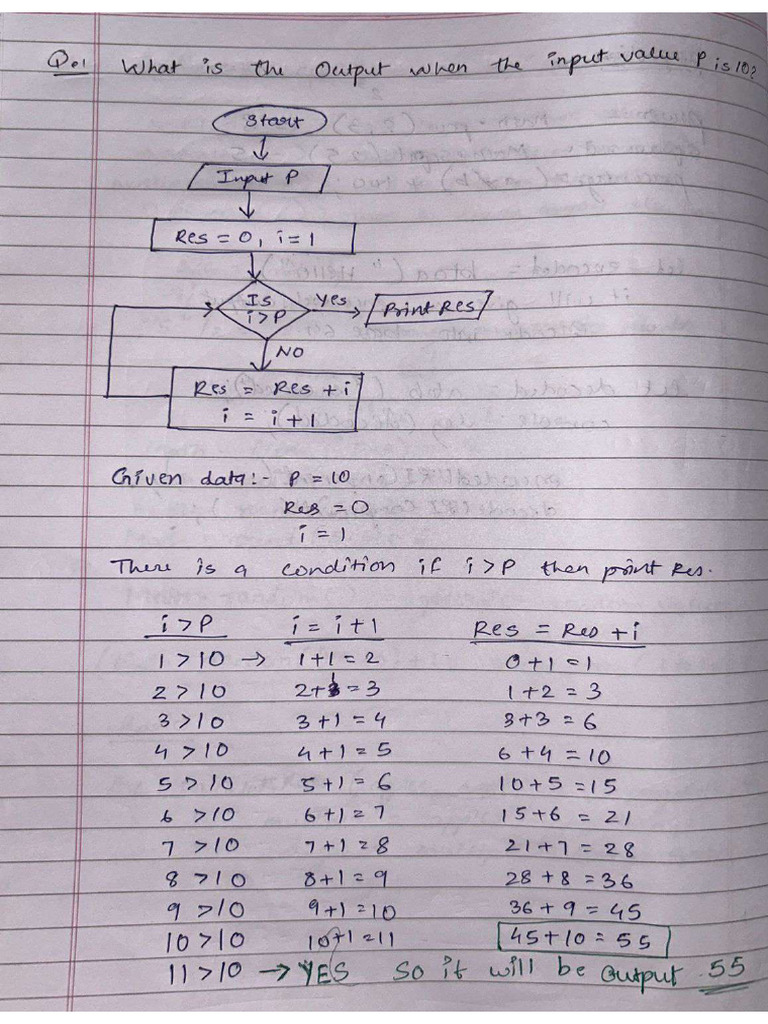 Q.1 What is the Output when the input value P is 10?
Start
Input P
Res = 0, i = 1
Is i>P
Yes
Print Res
NO
Res = Res + i
i = i + 1
Given data:- P = 10
Res = 0
i = 1
There is a condition if i > P then print Res.
i > P i = i + 1 Res = Res + i
1 > 10 → 1 + 1 = 2 0 + 1 = 1
2 > 10 2 + 1 = 3 1 + 2 = 3
3 > 10 3 + 1 = 4 3 + 3 = 6
4 > 10 4 + 1 = 5 6 + 4 = 10
5 > 10 5 + 1 = 6 10 + 5 = 15
6 > 10 6 + 1 = 7 15 + 6 = 21
7 > 10 7 + 1 = 8 21 + 7 = 28
8 > 10 8 + 1 = 9 28 + 8 = 36
9 > 10 9 + 1 = 10 36 + 9 = 45
10 > 10 10 + 1 = 11 45 + 10 = 55
11 > 10 → YES So it will be output 55